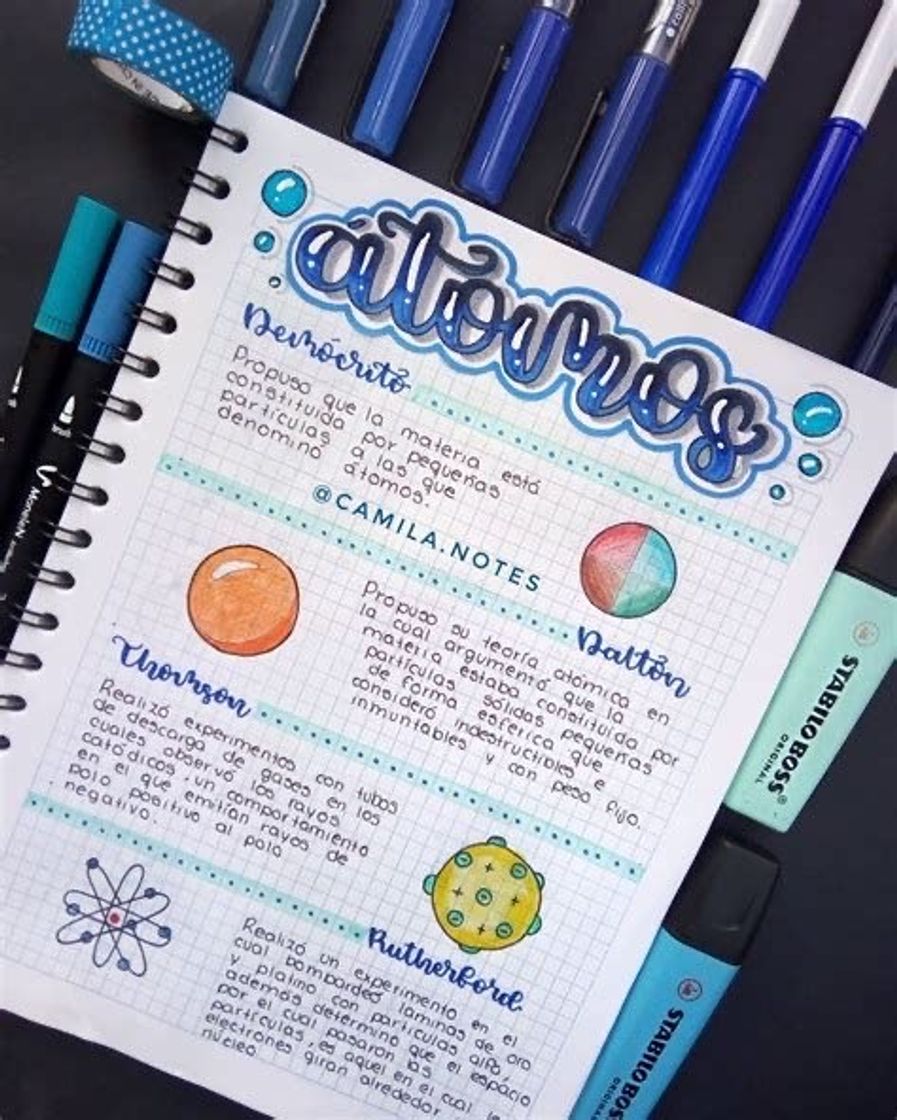 átomos
Demócrito
Propuso que la materia está
constituida por pequeñas
partículas a las que
denominó átomos.
@CAMILA.NOTES
Dalton
Propuso su teoría atómica en
la cual argumentó que la
materia estaba constituida por
partículas sólidas pequeñas
de forma esférica que
consideró indestructibles e
inmuntables y con peso fijo.
Thomson
Realizó experimentos con tubos
de descarga de gases en los
cuales observó los rayos
catódicos, un comportamiento
en el que emitían rayos de
polo positivo al polo
negativo.
Rutherbord
Realizó un experimento en el
cual bombardeó láminas de oro
y platino con partículas alfa,
además determinó que el espacio
por el cual pasaron las
partículas, es aquel en el cual
electrones giran alrededor
núcleo.
STABILO BOSS
ORIGINAL
STABILO BOSS
ORIGINAL